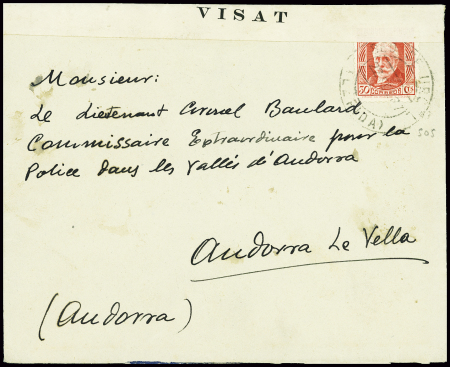 VISAT
30 CORREOS Cts
Monsieur:
Le Lieutenant Coronel Baulard
Commissaire Extraordinaire pour la
Police dans les Vallés d'Andorra
Andorra Le Vella
(Andorra)